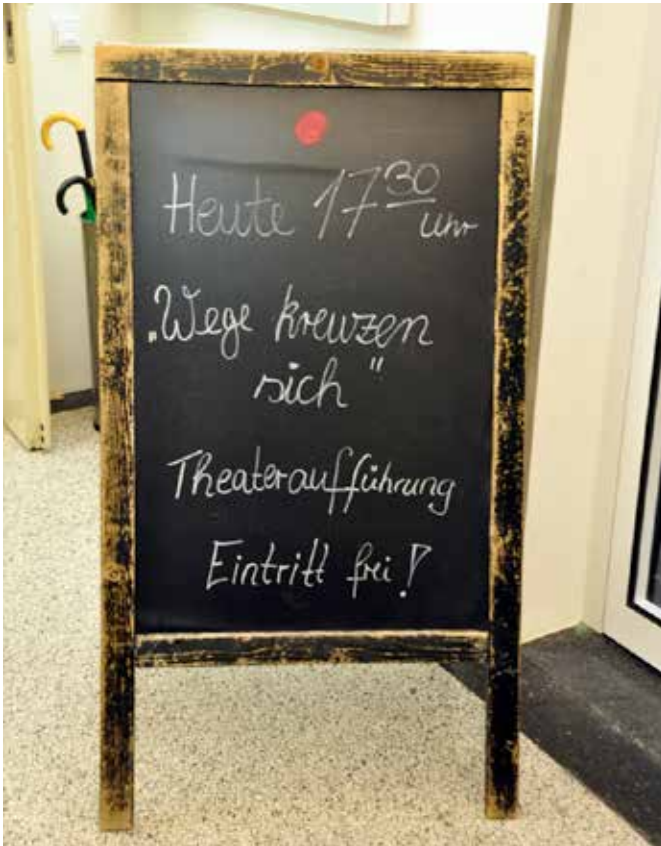 Heute 17³⁰ Uhr
„Wege kreuzen
sich"
Theateraufführung
Eintritt frei!